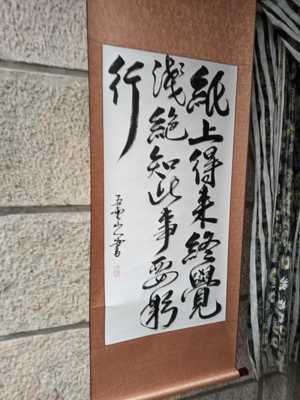 紙上得来終覺
淺絶知此事要躬
行
書